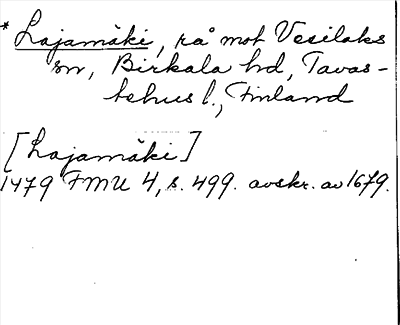 * Lajamäki, rå mot Vesilaks
sn, Birkala hd, Tavas-
tehus l., Finland
[Lajamäki]
1479 FMU 4, s. 499. avskr. av 1679.